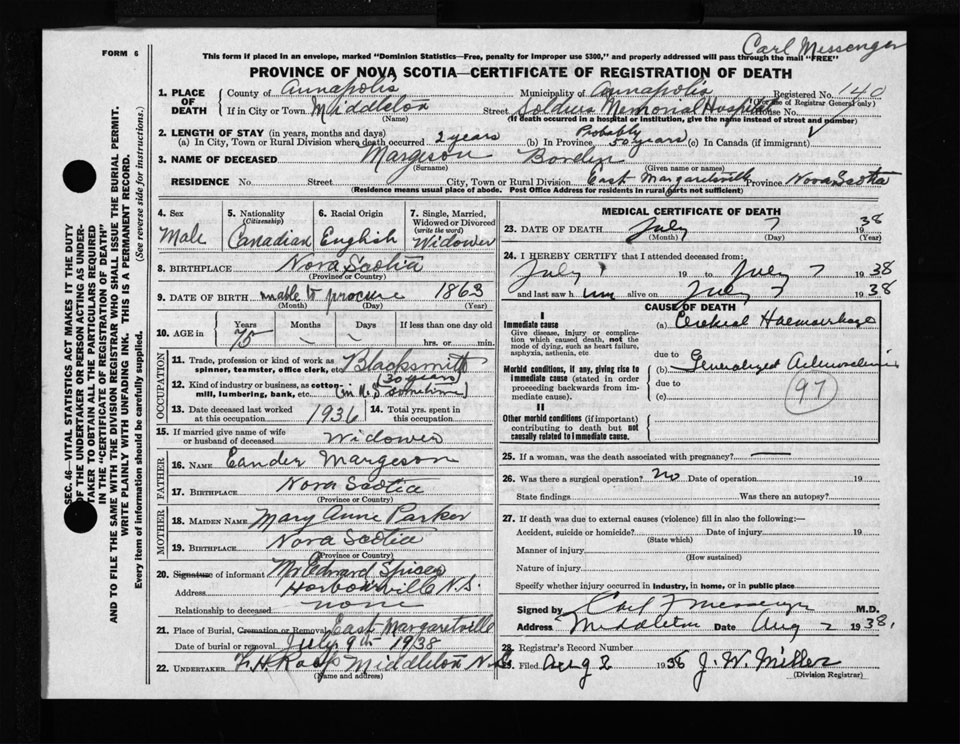 Carl Messenger
FORM 6
This form if placed in an envelope, marked "Dominion Statistics—Free, penalty for improper use $300," and properly addressed will pass through the mail "FREE"
PROVINCE OF NOVA SCOTIA—CERTIFICATE OF REGISTRATION OF DEATH
1. PLACE OF DEATH County of Annapolis Municipality of Annapolis Registered No. 140
(For use of Registrar General only)
If in City or Town Middleton Street Soldiers Memorial Hospital House No.
(Name) (If death occurred in a hospital or institution, give the name instead of street and number)
2. LENGTH OF STAY (in years, months and days)
(a) In City, Town or Rural Division where death occurred 2 years (b) In Province Probably 50 years (c) In Canada (if immigrant)
3. NAME OF DECEASED Margeson
(Surname) (Given name or names)
RESIDENCE No. Street City, Town or Rural Division East Margaretville Province Nova Scotia
(Residence means usual place of abode. Post Office Address for residents in rural parts not sufficient)
4. Sex Male
5. Nationality (Citizenship) Canadian
6. Racial Origin English
7. Single, Married, Widowed or Divorced (write the word) Widower
8. BIRTHPLACE Nova Scotia
(Province or Country)
9. DATE OF BIRTH unable to procure 1863
(Month) (Day) (Year)
10. AGE in Years 75 Months – Days – If less than one day old
hrs. or min.
OCCUPATION
11. Trade, profession or kind of work as spinner, teamster, office clerk, etc. Blacksmith
12. Kind of industry or business, as cotton-mill, lumbering, bank, etc. (30 years
13. Date deceased last worked at this occupation 1936 14. Total yrs. spent in this occupation
15. If married give name of wife or husband of deceased Widower
FATHER
16. NAME Eander Margeson
17. BIRTHPLACE Nova Scotia
(Province or Country)
MOTHER
18. MAIDEN NAME Mary Anne Parker
19. BIRTHPLACE Nova Scotia
(Province or Country)
20. Signature of informant Mr Edward Spicer
Address Harbourville N.S.
Relationship to deceased none
21. Place of Burial, Cremation or Removal East Margaretville
Date of burial or removal July 9th 1938
22. UNDERTAKER Middleton N.S.
(Name and address)
MEDICAL CERTIFICATE OF DEATH
23. DATE OF DEATH July 7 1938
(Month) (Day) (Year)
24. I HEREBY CERTIFY that I attended deceased from:
July 1 19 to July 7 1938
and last saw him alive on July 7 1938
CAUSE OF DEATH
I
Immediate cause (a) Cerebral Haemorrhage
Give disease, injury or complication which caused death, not the mode of dying, such as heart failure, asphyxia, asthenia, etc
due to
Morbid conditions, if any, giving rise to immediate cause (stated in order proceeding backwards from immediate cause).
(b) Generalized
due to
(c)
97
II
Other morbid conditions (if important) contributing to death but not causally related to immediate cause.
25. If a woman, was the death associated with pregnancy? —
26. Was there a surgical operation? no Date of operation 19
State findings Was there an autopsy?
27. If death was due to external causes (violence) fill in also the following:—
Accident, suicide or homicide? Date of injury 19
(State which)
Manner of injury
(How sustained)
Nature of injury
Specify whether injury occurred in industry, in home, or in public place
Signed by Carl F Messenger M.D.
Address Middleton Date Aug 2 1938.
28. Registrar's Record Number
29. Filed Aug 2 1938 J. W. Miller
(Division Registrar)
SEC. 46—VITAL STATISTICS ACT MAKES IT THE DUTY
OF THE UNDERTAKER OR PERSON ACTING AS UNDER-
TAKER TO OBTAIN ALL THE PARTICULARS REQUIRED
IN THE "CERTIFICATE OF REGISTRATION OF DEATH"
AND TO FILE THE SAME WITH THE DIVISION REGISTRAR WHO SHALL ISSUE THE BURIAL PERMIT.
WRITE PLAINLY WITH UNFADING INK. THIS IS A PERMANENT RECORD.
Every item of information should be carefully supplied. (See reverse side for instructions.)